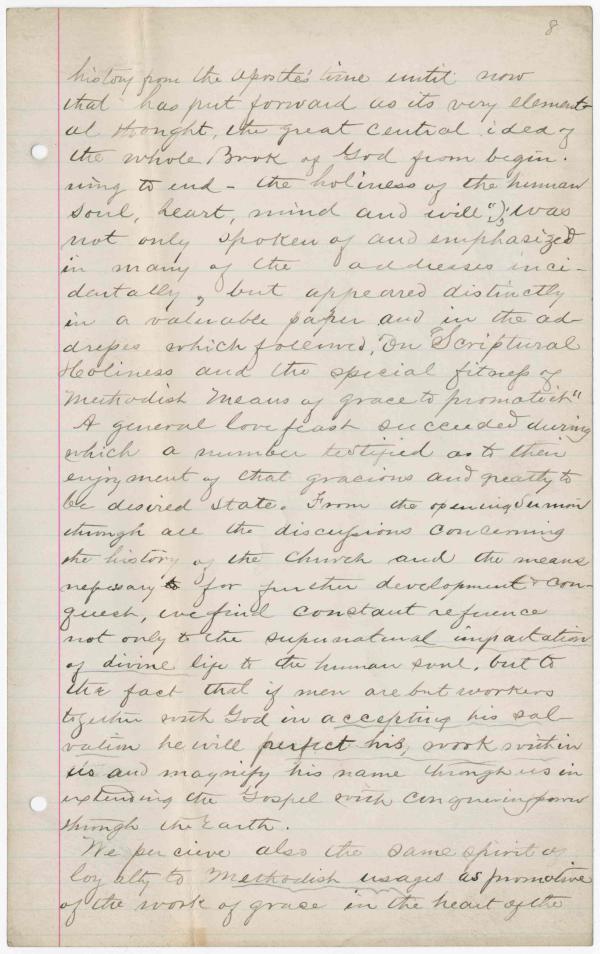 8
history from the apostle's time until now
that has put forward as its very element-
al thought, the great central idea of
the whole Book of God from begin-
ning to end - the holiness of the human
soul, heart, mind and will", was
not only spoken of and emphasized
in many of the addresses inci-
dentally, but appeared distinctly
in a valuable paper and in the ad-
dresses which followed, On "Scriptural
Holiness and the special fitness of
Methodist Means of grace to promote it"
A general love feast succeeded during
which a number testified as to their
enjoyment of that gracious and greatly to
be desired state. From the opening Sermon
through all the discussions concerning
the history of the Church and the means
necessary for further development & con-
quest, we find constant reference
not only to the supernatural impartation
of divine life to the human soul, but to
the fact that if men are but workers
together with God in accepting his sal-
vation he will perfect his work within
us and magnify his name through us in
extending the Gospel with conquering power
through the Earth.
We percieve also the same spirit of
loyalty to Methodist usages as promotive
of the work of grace in the heart of the